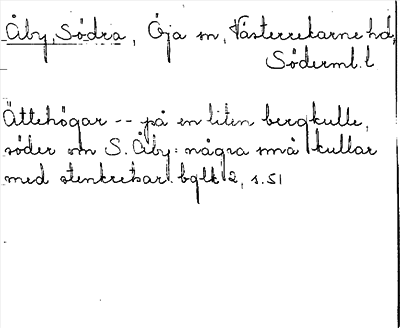 Åby, Södra, Öja sn, Västerrekarne hd,
Söderml. l.
Ättehögar -- på en liten bergkulle,
söder om S. Åby: några små kullar
med stenkretsar. bglk 2, s. 51